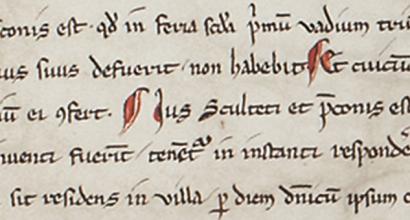 conis est · qd in feria scda pmū vadium tri
us suus defuerit · non habebit Et cuicū
ū ei ꝯfert · Jus Sculteti et pconis est
uenti fuerit tenet in instanti responde
sit residens in villa ꝑ diem dnicum ipsum